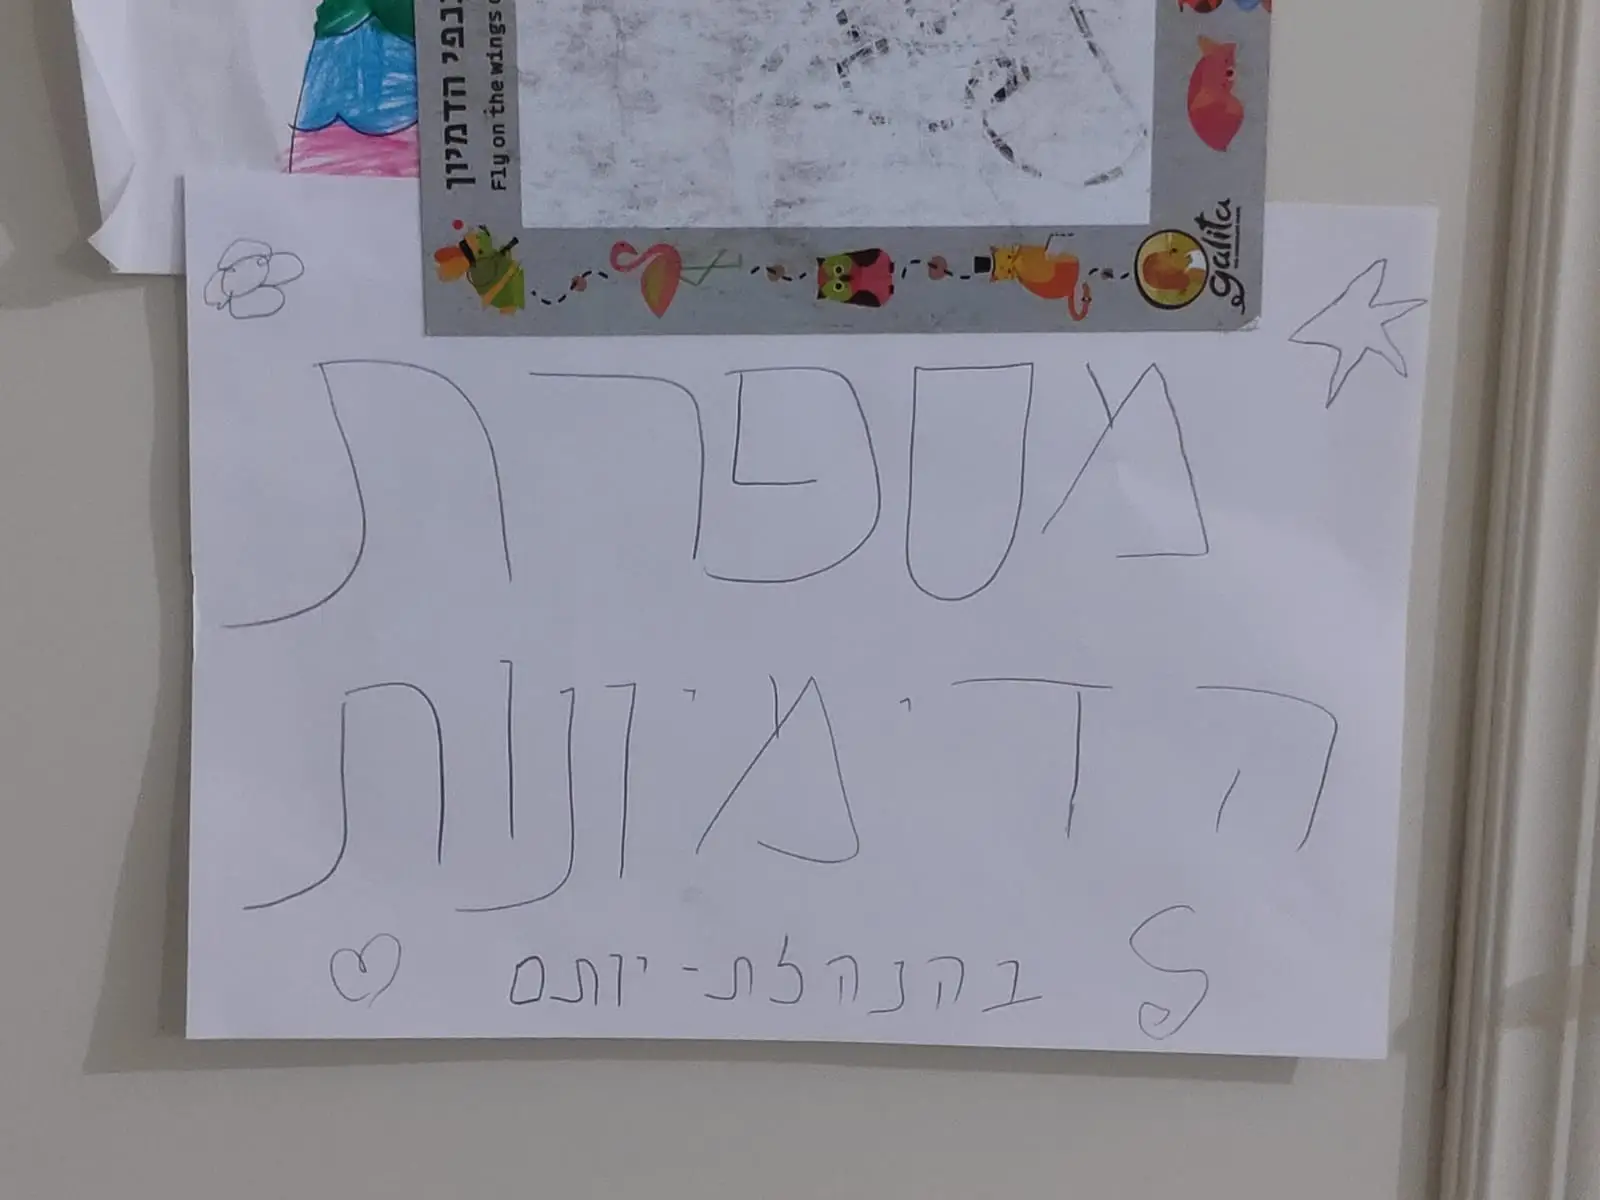 כנפי הדמיון
Fly on the wings o
galita
מספרת
הדימיונות
בהנהלת - יותם